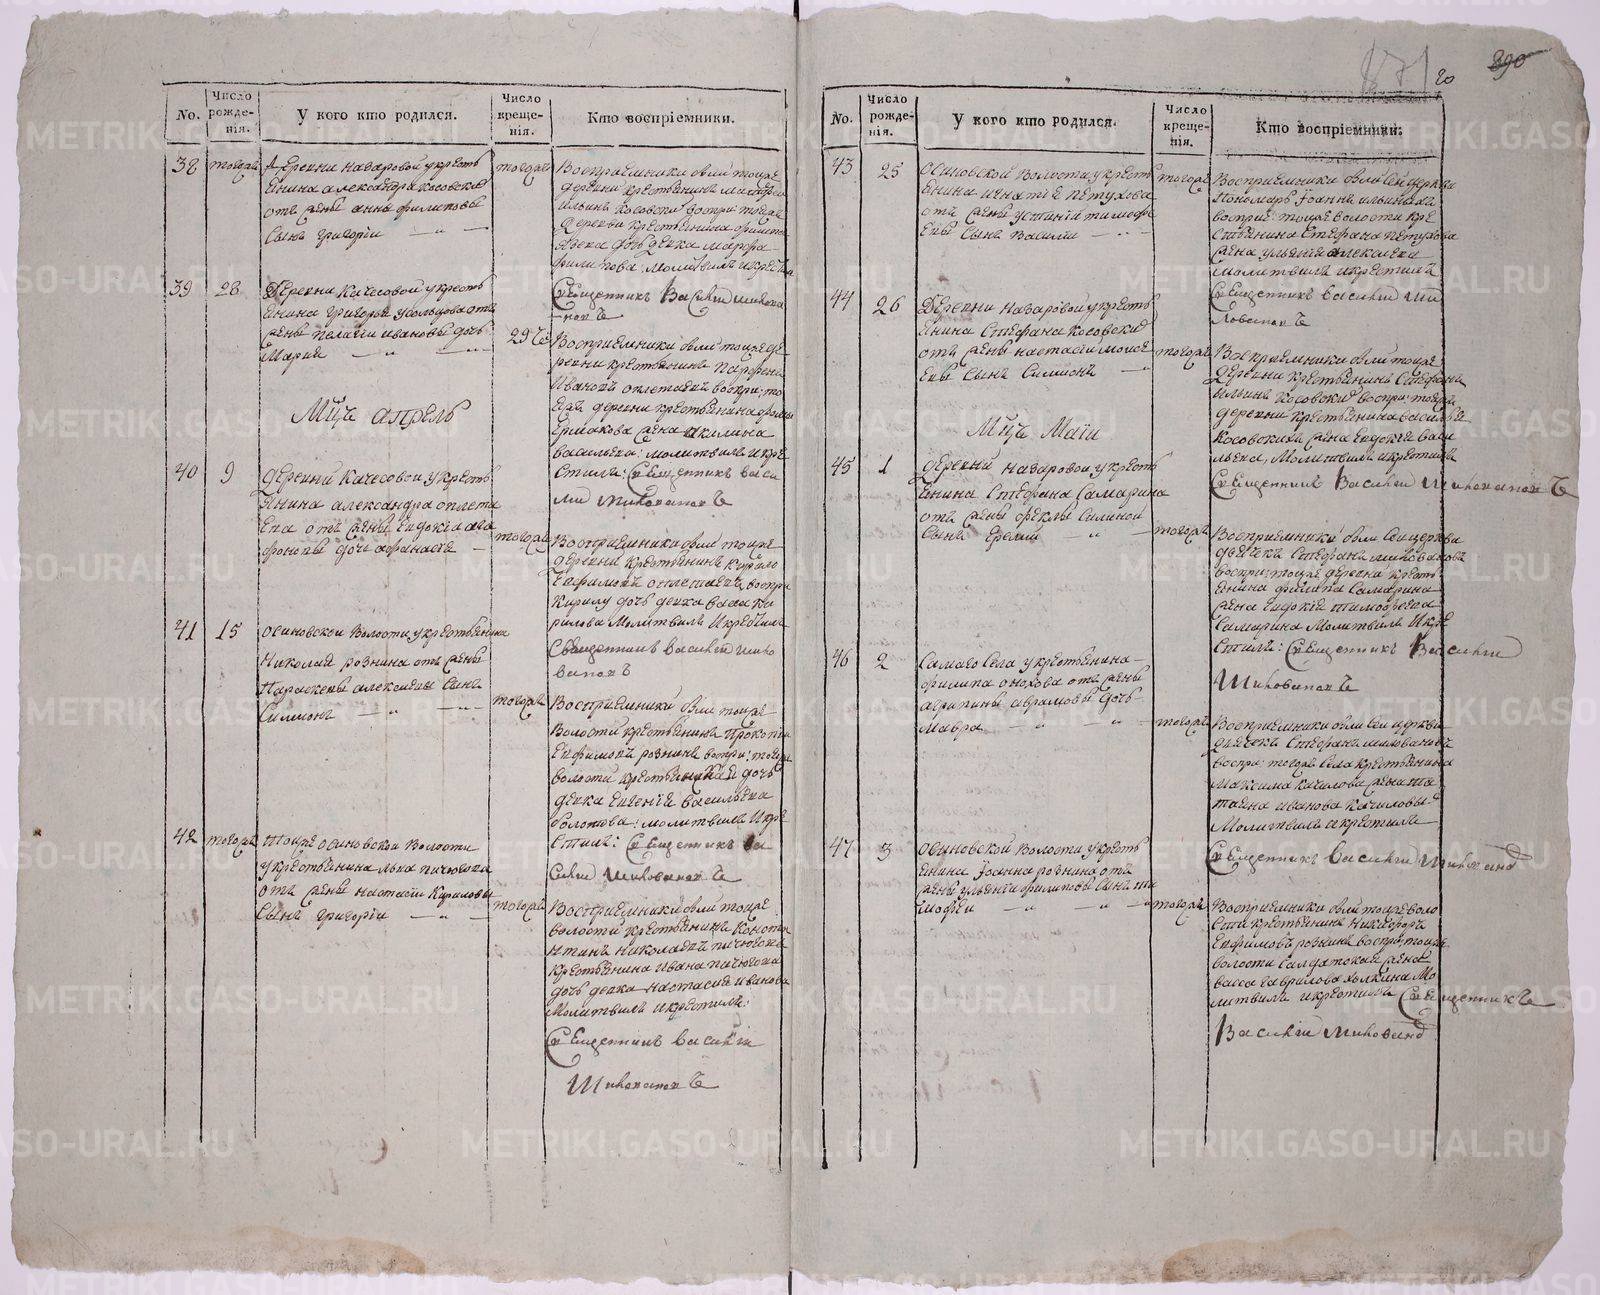 871
20
390
No.
Число рожде-нія.
У кого кто родился.
Число креще-нія.
Кто воспріемники.
38
тогожъ
Деревни Назаровой укресть
янина александра косовских
отъ жены анны филиповы
Сынъ григории
тогожъ
Восприемники были тоя же
деревни крестьянинъ
ильинъ косовски воспри: тояже
деревни крестьянина филипа
дочь девка марфа
филипова: молитвилъ икрестилъ
Священникъ Василий Шиховановъ
39
28
Деревни Качесовой укресть
янина григорья усольцова отъ
жены пелагии ивановы дочь
Мария
29 Че
Восприемники были тояже де
ревни крестьянинъ Парфенъ
Ивановъ оплетаевъ воспри: то
яжъ деревни крестьянина филипа
Ермакова жена акилина
васильева: молитвилъ икре
стилъ: Священникъ Васи
лий Шиховановъ
Мцъ апрель
40
9
деревни Качесовой укресть
янина александра оплета
ева отъ жены Евдокіи ага
фоновы дочь афанасия
тогожъ
Восприемники были тояже
деревни крестьянинъ Кирило
Евфимовъ оплетаевъ, воспри
Кирилу дочь девка васа Ки
рилова Молитвилъ Икрестилъ
Священникъ Василий Шихо
вановъ
41
15
Осиновской Волости укрестьянина
Николая рознина отъ жены
Параскевы алексиевы сынъ
Симионъ
тогожъ
Восприемники были тояже
Волости крестьянинъ Прокопи
Евфимовъ рознинъ воспри: тояже
волости крестьянина дочь
девка Евгения васильева
болотова: молитвилъ Икре
стилъ: Священникъ Ва
силий Шиховановъ
42
тогожъ
Тояже осиновской Волости
укрестьянина льва пичюгова
отъ жены настасии Кириловы
Сынъ григории
тогожъ
Восприемники были тояже
волости крестьянинъ Конста
нтинъ Николаевъ пичюговъ
крестьянина Ивана пичюгова
дочь девка настасия иванова
Молитвилъ Икрестилъ:
Священникъ Василий
Шиховановъ
No.
Число рожде-нія.
У кого кто родился.
Число креще-нія.
Кто воспріемники.
43
25
Осиновской Волости укресть
янина игнатіе петухова
отъ жены устинии тимофе
евы Сынъ Василии
тогожъ
Восприемники были Сея церкви
Пономарь Іоаннъ ильиныхъ
восприе: тояже волости кре
стьянина Стефана петухова
жена ульяния алексиева
молитвилъ икрестилъ
Священникъ василий Ши
ховановъ
44
26
Деревни Назаровой укресть
янина Стефана Косовских
отъ жены настасии моисе
евы Сынъ Симионъ
тогожъ
Восприемники были тояже
деревни крестьянинъ Стефанъ
ильинъ косовских воспри: тояже
деревни крестьянина василья
Косовских жена Евдокия васи
льева, Молитвилъ икрестилъ
Священникъ Василий Шиховановъ
Мцъ Маіи
45
1
деревни назаровой укресть
янина Стефана Самарина
отъ жены феклы Силиной
Сынъ Еремии
тогожъ
Восприемники были Сея церкви
дьячекъ Стефанъ миловановъ
воспри: тояже деревни кресть
янина филипа Самарина
жена Евдокия тимофеева
Самарина Молитвилъ Икре
стилъ: Священникъ Василий
Шиховановъ
46
2
Самаго Села укрестьянина
филипа онохова отъ жены
агрипины аврамовы дочь
Мавра
тогожъ
Восприемники были Сея церкви
дьячекъ Стефанъ миловановъ
воспри: тогожъ села крестьянина
Максима качилова жена та
тияна иванова качиловы
Молитвилъ икрестилъ
Священникъ Василий Шиховановъ
47
3
Осиновской Волости укресть
янина Іоанна рознина отъ
жены ульянии филиповы Сынъ ти
мофеи
тогожъ
Восприемники были тояже воло
сти крестьянинъ Никифоръ
Евфимовъ рознинъ воспри: тояже
волости Салдатокая жена
васса гаврилова холкина Мо
литвилъ икрестилъ Священникъ
Василий Шиховановъ
METRIKI.GASO-URAL.RU